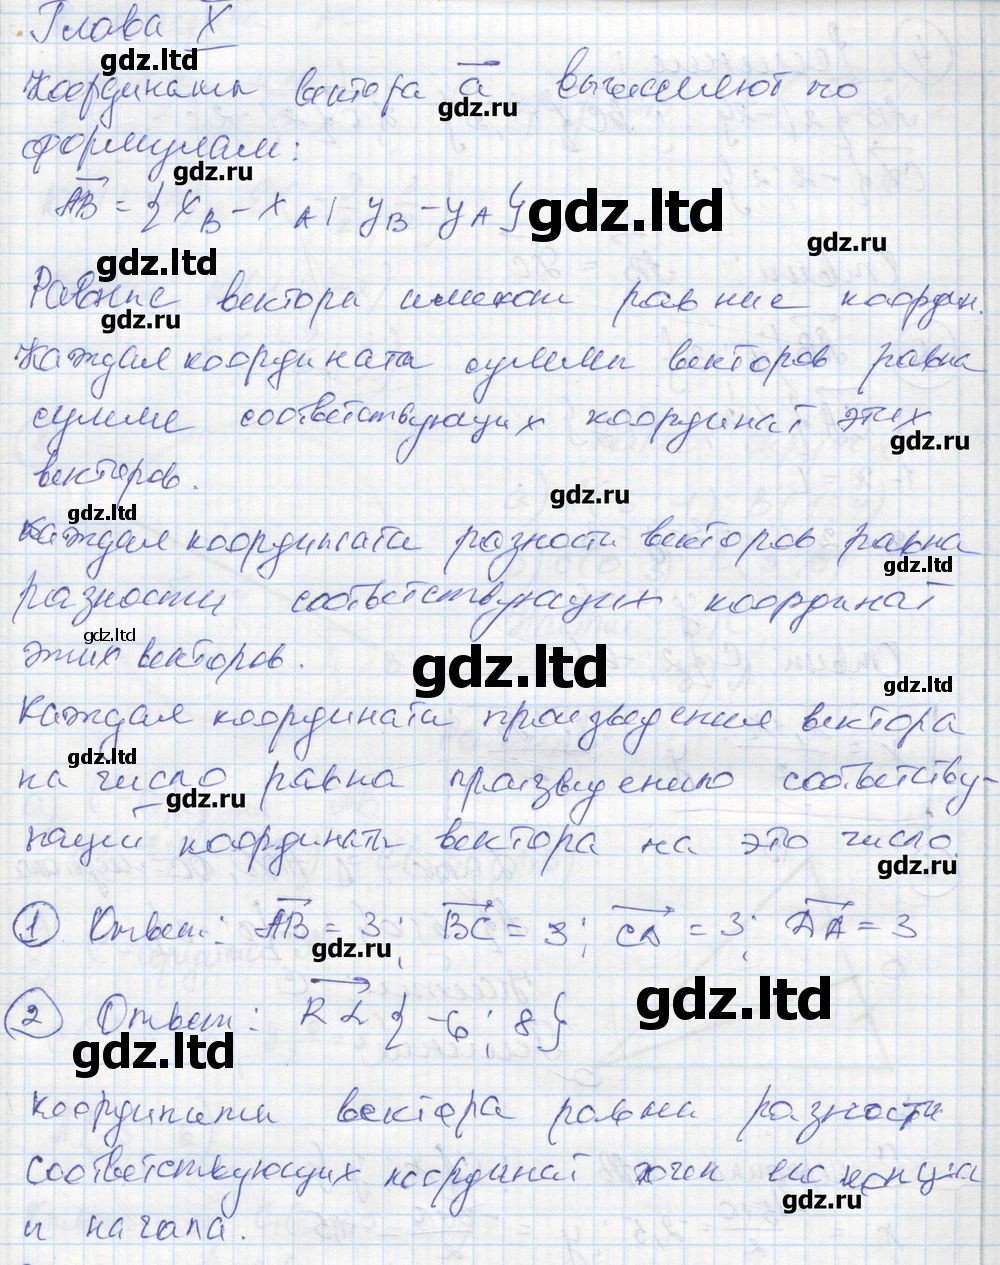 Глава X
gdz.ltd
Координаты вектора a вычисляют по
gdz.ru
формулам:
gdz.ru
AB = { x_B - x_A ; y_B - y_A }
gdz.ltd
gdz.ru
gdz.ltd
Равные вектора имеют равные координ.
gdz.ru
Каждая координата суммы векторов равна
сумме соответствующих координат этих
gdz.ru
векторов.
gdz.ru
gdz.ltd
Каждая координата разности векторов равна
gdz.ltd
разности соответствующих координат
gdz.ltd
этих векторов.
gdz.ltd
gdz.ltd
Каждая координата произведения вектора
gdz.ltd
на число равна произведению соответству-
gdz.ru
ющей координаты вектора на это число.
gdz.ru
1 Ответ: AB = 3; BC = 3; CD = 3; DA = 3
gdz.ru
gdz.ltd
2 Ответ: RL { -6 ; 8 }
gdz.ltd
Координаты вектора равны разности
соответствующих координат точек его конца
gdz.ru
и начала.